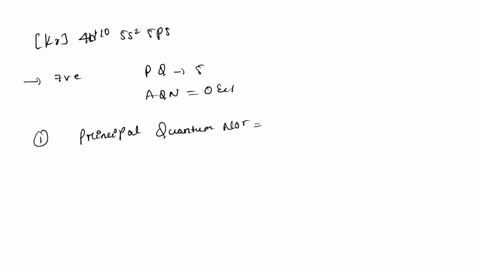 [Kr] 4d10 5s2 5p5
→ 7ve PQ → 5
AQN = 0 & 1
① Principal Quantum No =